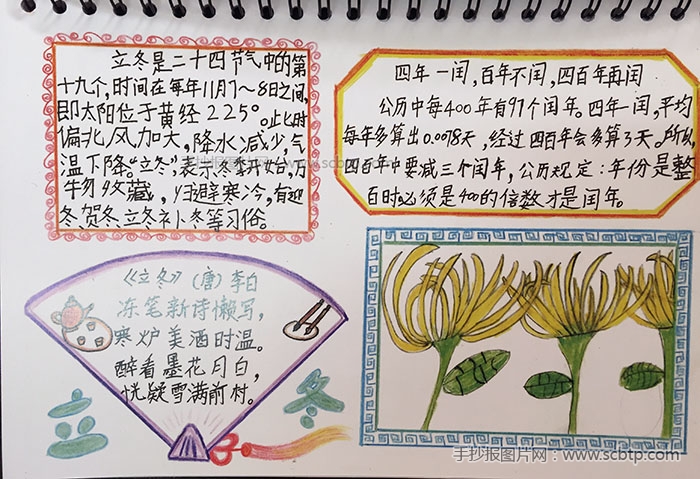 立冬是二十四节气中的第
十九个,时间在每年11月7~8日之间,
即太阳位于黄经225°。此时
偏北风加大,降水减少,气
温下降。“立冬”,表示冬季开始,万
物收藏,归避寒冷,有迎
冬、贺冬、立冬补冬等习俗。
四年一闰,百年不闰,四百年再闰
公历中每400年有97个闰年。四年一闰,平均
每年多算出0.0078天,经过四百年会多算3天。所以
四百年中要减三个闰年,公历规定:年份是整
百时必须是400的倍数才是闰年。
《立冬》(唐)李白
冻笔新诗懒写,
寒炉美酒时温。
醉看墨花月白,
恍疑雪满前村。
立
冬
手抄报图片网:www.scbtp.com
手抄报图片网:www.scbtp.com